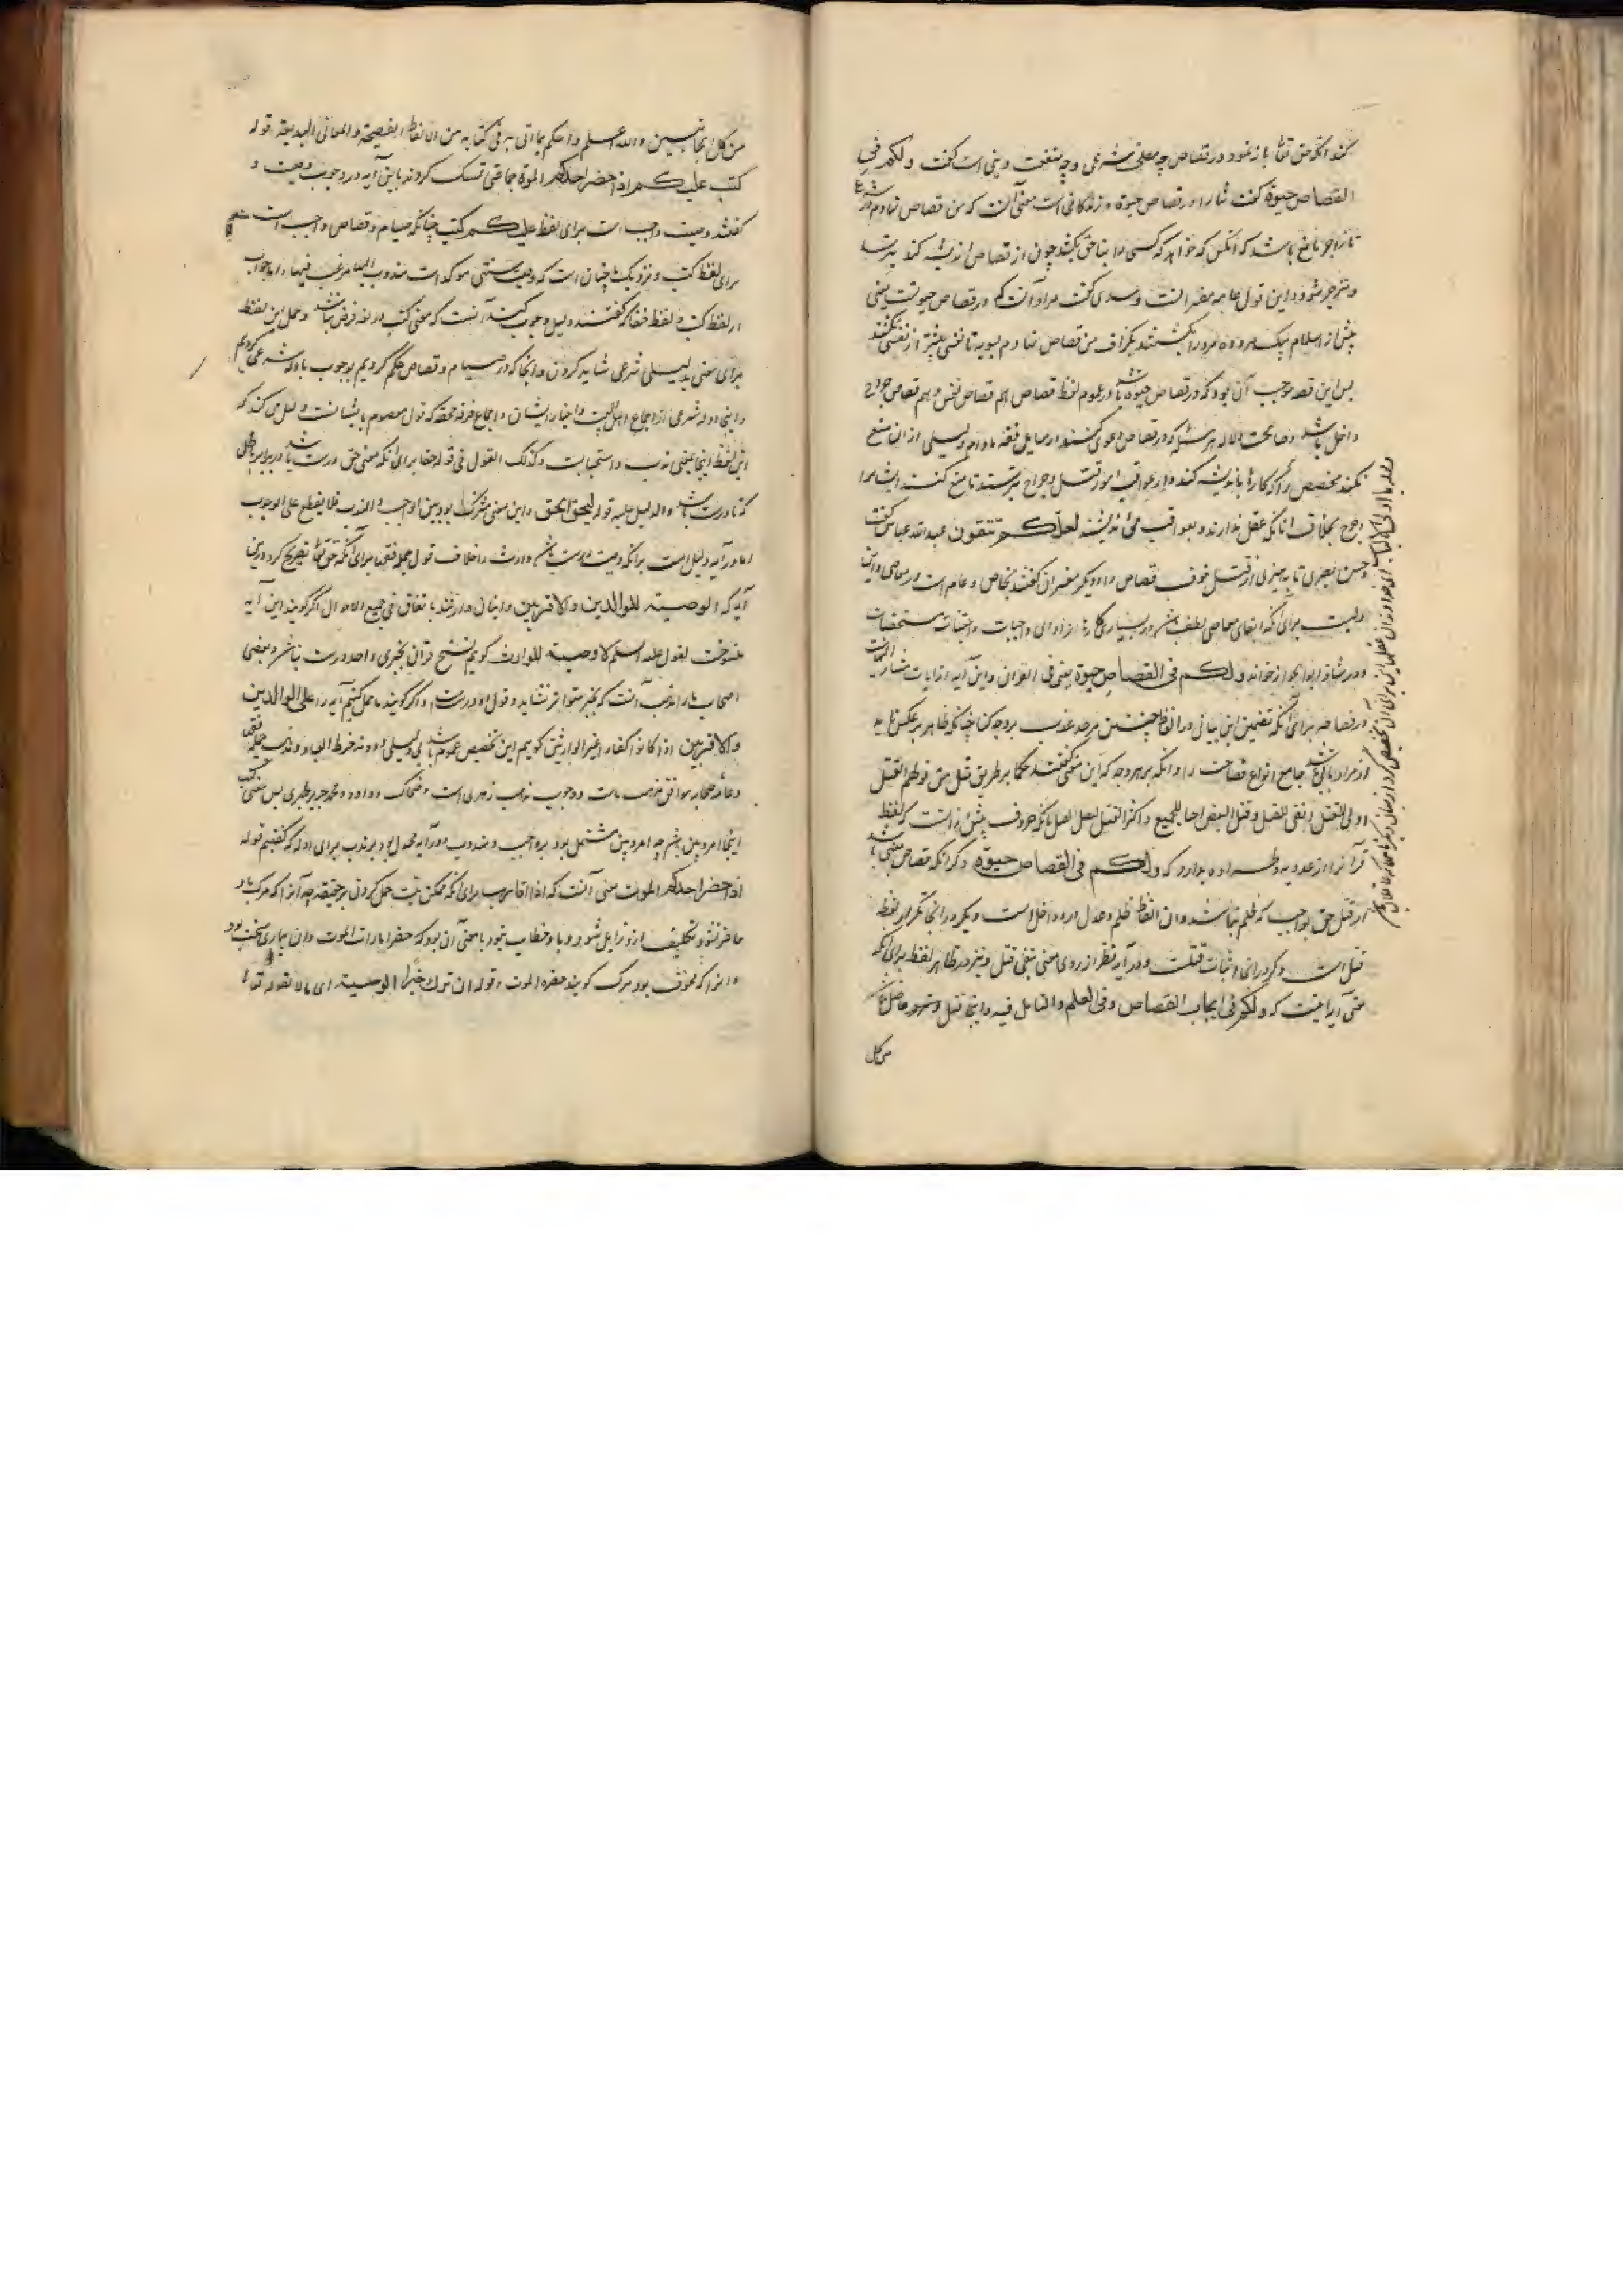 کند آنکه حق تعالی باز نمود در قصاص چه مصلحت شرعی و چه منفعت دینی است گفت ولکم فی
القصاص حیوة گفت شما را در قصاص حیوة و زندگانی است معنی آنست که من قصاص نهادم در شرع
تا زاجر و مانع باشد که آنکس که خواهد که کسی را بناحق بکشد چون از قصاص اندیشه کند بترسد
و منزجر شود و این قول عامه مفسرانست و سدی گفت مراد آنست که در قصاص حیوتست یعنی
پیش از اسلام بیک مرد ده مرد را بکشتندی بگزاف من قصاص نهادم بسویه تا نفسی بیشتر از نفسی نکشند
پس این قصه موجب آن بود که در قصاص حیوة باشد و در عموم لفظ قصاص هم قصاص نفس و هم قصاص جراح
داخل باشد و صالحست دلاله هر مسئله که در قصاص دعوی کنند از مسایل فقه مادام دلیلی از آن منع
نکند مخصص را در کارها باندیشه کند و از عواقب امور قتل و جراح بترسند تا منع کنند ایشانرا
و جرح بخلاف آنانکه عقل ندارند و بعواقب نمی اندیشند لعلکم تتقون عبدالله عباس گفت
و حسن بصری تا بپرهیزی از قتل خوف قصاص را و دیگر مفسران گفتند خاص و عام است در معاصی و این
برای آنکه اتقای معاصی لطف باشد در بسیاری کارها از ادای واجبات و اجتناب مستقبحات
و در شاذ ابو الجوزا خواند ولکم فی القصص حیوة یعنی فی القرآن و این آیه از آیات مشار الیهاست
در فصاحه برای آنکه تضمین این بیانی در الفاظی چنین موجز عذب بر وجه کنایه چنانکه ظاهر بر عکس نماید
از مراد تالی باشد جامع انواع فصاحت را و آنکه بر هر وجه که این معنی گفتند حکما بر طریق مثل من قولهم القتل
اولی للقتل و انفی للقتل و قتل البعض احیا للجمیع و اکثر القتل لیقل القتل بآنکه حروف بیشتر است که لفظ
قرآن را از عذوبه و طراوه ندارد که ولکم فی القصاص حیوة و دگر آنکه قصاص منبی باشد
از قتل حق بواجب که ظلم نباشد و آن الفاظ ظلم و عدل درو داخل است و دیگر در آنجا تکرار لفظ
قتل است و دگر در آن اثبات قتلست و در آیه نظر از روی معنی بنفی قتل و نیز در ظاهر لفظ برای آنکه
معنی آیه اینست که ولکم فی ایجاب القصاص وفی العلم والتامل فیه و اینجا قتل و
من کل
من کل الجانبین والله اعلم واحکم بما اتی به فی کتابه من الالفاظ الفصیحة والمعانی البدیعة قوله
کتب علیکم اذا حضر احدکم الموت جماعتی تمسک کردند باین آیه در وجوب وصیت و
گفتند وصیت واجب است برای لفظ علیکم کتب چنانکه صیام و قصاص واجب است هم
برای لفظ کتب و نزدیک ما چنان است که وصیت سنتی موکد است مندوب الیها مرغب فیها و اما جواب
از لفظ کتب و لفظ حقا که گفتند دلیل وجوب کند آنست که معنی کتب در لغه فرض نباشد و حمل این لفظ
برای معنی بدلیلی شرعی شاید کردن و آنجا که در صیام و قصاص حکم کردیم بوجوب بادله شرعی کردیم
و اینجا ادله شرعی از اجماع اهل البیت و اخبار ایشان و اجماع فرقه محقه که قول معصوم با ایشانست دلیل می کند که
این لفظ اینجا بمعنی ندب و استحبابست و کذلک القول فی قوله حقا برای آنکه معنی حق درست باشد در برابر باطل
که نادرست باشد والدلیل علیه قوله لیحق الحق و این معنی مشترکست بود بین الواجب والندب فلا یقطع علی الوجوب
اما در آیه دلیل است بر آنکه وصیت درست باشد وارث را خلاف قول جمله فقها برای آنکه حق تعالی تصریح کرد درین
آیه که الوصیة للوالدین والاقربین و اینان وارثند باتفاق فی جمیع الاحوال اگر گویند این آیه
منسوخست لقوله علیه السلم لا وصیة للوارث گویم نسخ قرآن بخبری واحد درست نباشد و بعضی
اصحاب ما را مذهب آنست که بخبر متواتر نشاید و قول او درست و اگر گویند ما حمل کنیم آیه را علی الوالدین
والاقربین اذا کانوا کفارا غیر الوارثین گویم این تخصیص عموم باشد بی دلیلی و دونه خرط القتاد و مذهب جمله فقها
و عامه صحابه موافق مذهب ماست و وجوب مذهب زهری است و ضحاک و داود و محمد جریر طبری پس معنی کتب
اینجا امر دین باشد چه امر دین مشتمل بود بر واجب و مندوب در آیه محمول بود بر ندب برای ادله که گفتیم قوله
اذا حضر احدکم الموت معنی آنست که اذا قارب برای آنکه ممکن نیست حمل کردن بر حقیقه چه آنرا که مرگ باو
حاضر شود تکلیف ازو زایل شود و با او خطاب نبود یا معنی آن بود که حضر امارات الموت و آن بیماری سخت بود
و آنرا که مخوف بود مرگ گویند حضره الموت و قوله ان ترک خیرا الوصیة ای مالا لقوله تعالی